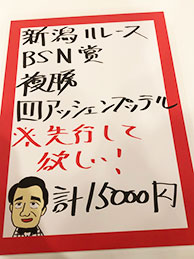 新潟11レース
BSN賞
複勝
11アッシェンプッテル
※先行して
欲しい!
計15000円